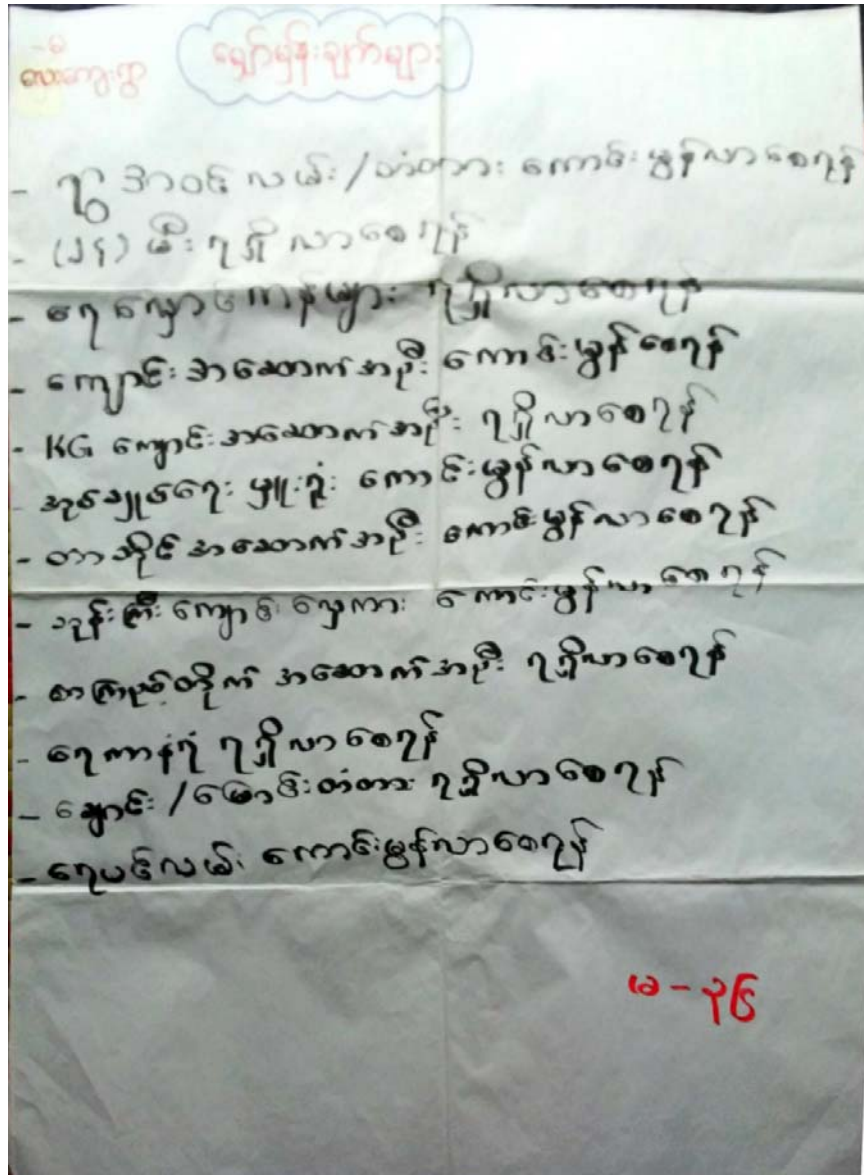 မျှော်မှန်းချက်များ
- ရွာအဝင်လမ်း/တံတား ကောင်းမွန်လာစေရန်
- (၂၄) မီး ရရှိလာစေရန်
- ရေလှောင်ကန်များ ရရှိလာစေရန်
- ကျောင်းအဆောက်အဦး ကောင်းမွန်စေရန်
- KG ကျောင်းအဆောက်အဦး ရရှိလာစေရန်
- အုပ်ချုပ်ရေးမှူးရုံး ကောင်းမွန်လာစေရန်
- တာဘိုင်အဆောက်အဦး ကောင်းမွန်လာစေရန်
- ဘုန်းကြီးကျောင်းလှေကား ကောင်းမွန်လာစေရန်
- စာကြည့်တိုက် အဆောက်အဦး ရရှိလာစေရန်
- ရေကာနံရံ ရရှိလာစေရန်
- ချောင်း/မြောင်းတံတား ရရှိလာစေရန်
- ရေပင်လမ်း ကောင်းမွန်လာစေရန်